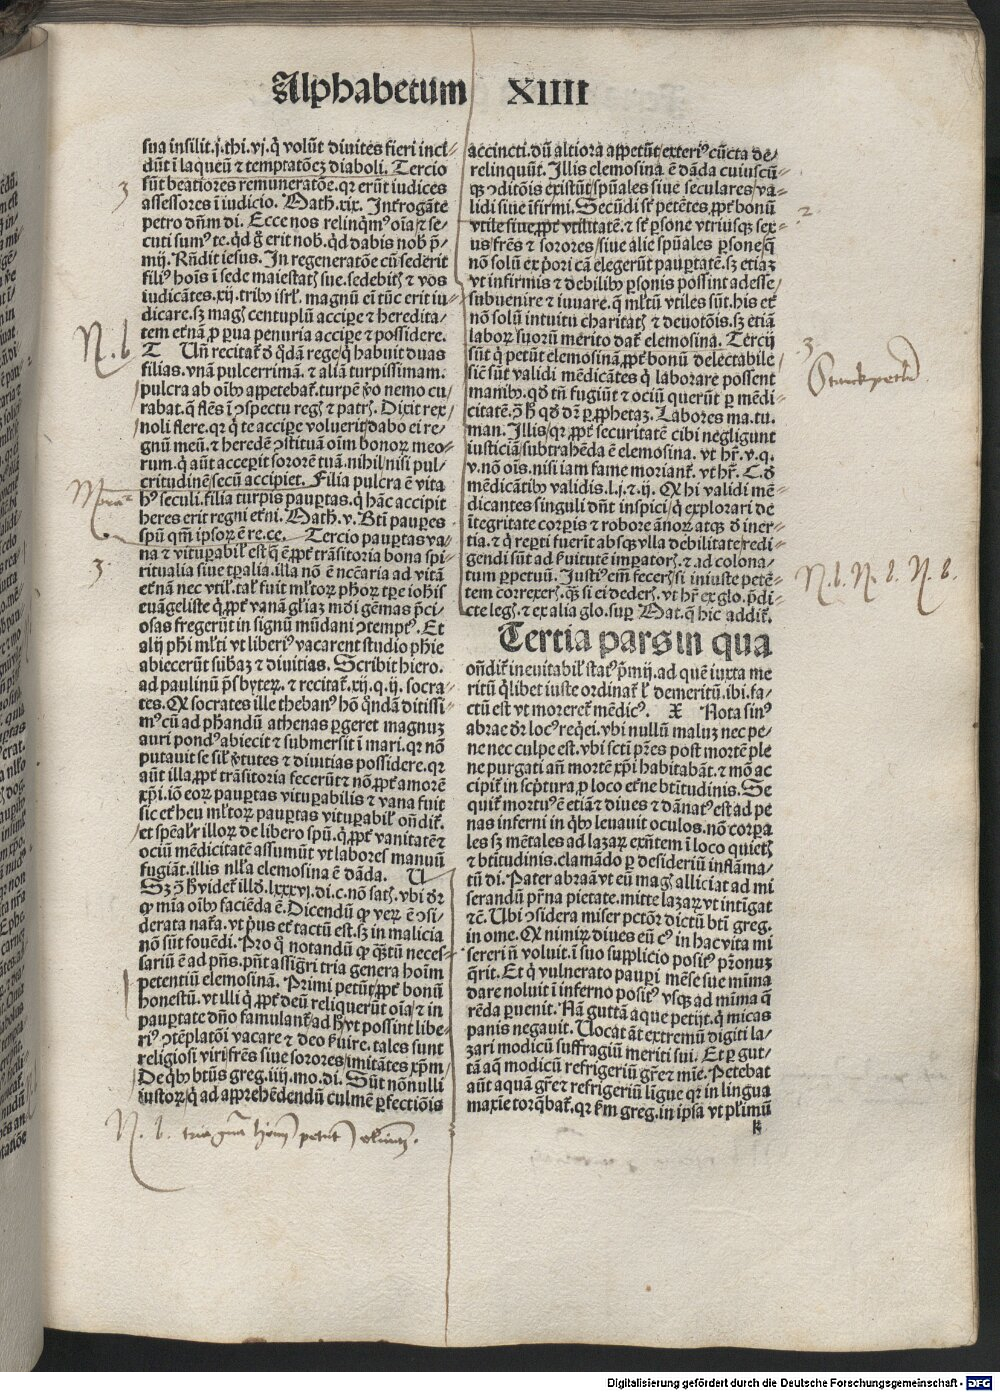 Alphabetum XIIII
sua insilit.j.thi.vj.q̃ volũt diuites fieri inci⸗
dũt ĩ laqueũ ⁊ temptatõeꝫ diaboli. Tercio
sũt beatiores remuneratõe.qꝛ erũt iudices
assessores ĩ iudicio. Math.xix. Inťrogãte
petro dñm di. Ecce nos relinqͥmꝰ oĩa ⁊ se⸗
cuti sumꝰ te.qd g̃ erit nob.qd dabis nob p̃⸗
mij. Rñdit iesus. In regeneratõe cũ sederit
filiꝰ hoĩs ĩ sede maiestatꝭ sue.sedebitꝭ ⁊ vos
iudicãtes.xij.tribꝰ isrl̃. magnũ eĩ tũc erit iu⸗
dicare.sꝫ magꝭ centuplũ accipe ⁊ heredita⸗
tem eťnã ꝓ ꝑua penuria accipe ⁊ possidere.
T Uñ recitať ð q̃dã rege/q̃ habuit duas
filias.vnã pulcerrimã. ⁊ aliã turpissimam.
pulcra ab oĩbꝰ appetebať.turpẽ ṽo nemo cu⸗
rabat.q̃ flẽs ĩ ↄspectu regꝭ ⁊ patrꝭ. Dixit rex
noli flere.qꝛ q̃ te accipe voluerit/dabo ei re⸗
gnũ meũ.⁊ heredẽ ↄstituã oĩm bonoꝝ meo⸗
rum.q̃ aũt acceꝑit sororẽ tuã.nihil/nisi pul⸗
critudinẽ secũ accipiet. Filia pulcra ẽ vita
hꝰ seculi.filia turpis paupťas.q̃ hãc accipit
heres erit regni eťni. Math.v. Bti pauꝑes
spũ qm̃ ipsoꝝ ẽ re.ce. Tercio paupťas va⸗
na ⁊ vituꝑabil̃ est q̃ ẽ ꝓpť trãsitoria bona spi
ritualia siue tꝑalia.illa nõ ẽ ncẽaria ad vitã
eťnã nec vtil̃.tal̃ fuit ml̃toꝝ ph̃oꝝ tꝑe iohis
euãgeliste q̃ ꝓpť vanã gl̃iaꝫ mũdi gẽmas p̃ci⸗
osas fregerũt in signũ mũdani ↄtemptꝰ. Et
alij phi ml̃ti vt liberiꝰ vacarent studio phie
abiecerũt subaꝫ ⁊ diuitias. Scribit hiero.
ad paulinũ p̃sbyteꝝ. ⁊ recitať.xij.q.ij. socra⸗
tes. Ꝙ socrates ille thebanꝰ hõ q̃ndã ditissi⸗
mꝰ cũ ad ph̃andũ athenas ꝑgeret magnuꝫ
auri pondꝰ abiecit ⁊ submersit ĩ mari.qꝛ nõ
putauit se sil̃ ṽtutes ⁊ diuitias possidere.qꝛ
aũt illa ꝓpť trãsitoria fecerũt ⁊ nõ ꝓpť amorẽ
xp̃i.iõ eoꝝ paupťas vituꝑabilis ⁊ vana fuit
sic eť heu ml̃toꝝ paupťas vituꝑabil̃ oñdiť.
et sp̃ealť illoꝝ de libero spũ.q̃ ꝓpť vanitatẽ ⁊
ociũ mẽdicitatẽ assumũt vt labores manuũ
fugiãt.illis nl̃la elemosina ẽ dãda. U
Sꝫ ↄ̃ h̃ videť illð.lxxxvj.di.c.nõ satꝭ.vbi ðꝛ
ꝙ mĩa oĩbꝰ faciẽda ẽ. Dicendũ ꝙ veꝝ ẽ ↄsi⸗
derata naťa.vt p̃us eť tactũ est.sꝫ in malicia
nõ sũt fouẽdi. Pro q̃ notandũ ꝙ q̃ʒtũ neces⸗
sariũ ẽ ad p̃ñs.p̃ñt assigr̃i tria genera hoĩm
petentiũ elemosinã. Primi petũt ꝓpť bonũ
honestũ.vt illi q̃ ꝓpť deũ reliquerũt oĩa/⁊ in
paupertate dño famulanť/ad h̃ vt possint libe⸗
riꝰ ↄtẽplatõi vacare ⁊ deo ẜuire.tales sunt
religiosi viri/frẽs siue sorores/imitãtes xp̃m
De qͥbꝰ btũs greg.iiij.mo.di. Sũt nõnulli
iustoꝝ/q̃ ad apprehẽdendũ culmẽ ꝑfectiõis
accincti.dũ altiora appetũt/exteriꝰ cũcta de⸗
relinquũt. Illis elemosina ẽ dãda cuiuscũ⸗
qꝫ ↄditõis existũt/spũales siue seculares/va⸗
lidi siue ĩfirmi. Secũdi sť petẽtes ꝓpť bonũ
vtile siue ꝓpť vtilitatẽ.⁊ sť ꝑsone vtriusqꝫ sex⸗
us frẽs ⁊ sorores/siue alie spũales ꝑsone/q̃
nõ solũ ex p̃ori cã elegerũt pauꝑtatẽ.sꝫ etiaꝫ
vt infirmis ⁊ debilibꝰ ꝑsonis possint adesse
subuenire ⁊ iuuare.q̃ ml̃tũ vtiles sũt.his eť
nõ solũ intuitu charitatꝭ ⁊ deuotõis.sꝫ etiã
laboꝝ suoꝝũ merito dať elemosina. Tercij
sũt q̃ petũt elemosinã ꝓpť bonũ delectabile
siẽ sũt validi mẽdicãtes q̃ laborare possent
manibꝰ.qð tñ fugiũt ⁊ ociũ querũt ꝑ mẽdi⸗
citatẽ.ↄ̃ h̃ qð dr̃ ꝑ ꝓphetaꝫ. Labores ma.tu.
man. Illis/qꝛ ꝓpť securitatẽ cibi negligunt
iusticiã/subtrahẽda ẽ elemosina. vt hr̃.v.q.
v.nõ oĩs.nisi iam fame morianť.vt hr̃. C.ð
mẽdicãtibꝰ validis.l.j.⁊.ij. Ꝙ hi validi mẽ⸗
dicantes singuli dñt inspici/q̃ explorari de
ĩtegritate corꝑis ⁊ robore ãnoꝝ atqꝫ ð iner⸗
tia.⁊ q̃ reꝑti fuerit absqꝫ vlla debilitate/redi⸗
gendi sũt ad ẜuitutẽ imꝑatorꝭ.⁊ ad colona⸗
tum ꝑpetuũ. Iustiꝰ em̃ fecerꝭ si iniuste petẽ⸗
tem correxerꝭ.q̃ʒ si ei dederꝭ.vt hr̃ ex glo.p̃di⸗
cte legꝭ.⁊ ex alia glo.suꝑ Mat.q̃ hic addiť.
Tertia pars in qua
oñdiť ineuitabil̃ statꝰ p̃mij.ad quẽ iuxta me
ritũ q̃libet iuste ordinať ł demeritũ.ibi.fa⸗
ctũ est vt morereť mẽdicꝰ. X Nota sinꝰ
abrae ðꝛ locꝰ reqͥei.vbi nullũ maluꝫ nec pe⸗
ne nec culpe est.vbi scti p̃res post mortẽ ple
ne purgati añ mortẽ xp̃i habitabãt.⁊ mõ ac
cipiť in scp̃tura ꝓ loco eťne btitudinis. Se
quiť mortuꝰ ẽ etiã ⁊ diues ⁊ dãnatꝰ est ad pe
nas inferni in qͥbꝰ leuauit oculos.nõ corpa
les sꝫ mẽtales ad lazaꝝ exñtem ĩ loco quietꝭ
⁊ btitudinis.clamãdo ꝑ desideriũ inflãma⸗
tũ di. Pater abraã vt eũ magꝭ alliciat ad mi
serandũ p̃rna pietate.mitte lazaꝝ vt intĩgat
⁊c̃. Ubi ↄsidera miser pctõꝛ dictũ bti greg.
in ome. Ꝙ nimiꝝ diues eũ cꝰ in hac vita mi
sereri ñ voluit.ĩ suo supplicio positꝰ pr̃onuꝫ
q̃rit. Et q̃ vulnerato pauꝑi mẽse sue mĩma
dare noluit ĩ inferno positꝰ vsqꝫ ad mĩma q̃
rẽda ꝑuenit. Nã guttã aque petijt.q̃ micas
panis negauit. Uocat ãt extremũ digiti la⸗
zari modicũ suffragiũ meriti sui. Et ꝑ gut⸗
tã aq̃ modicũ refrigeriũ gr̃e ⁊ mĩe. Petebat
aũt aquã gr̃e ⁊ refrigeriũ ligue qꝛ in lingua
maxĩe torq̃bať.qꝛ ẜm greg.in ip̃sa vt pl̃imũ
k
3
N.b
3.
2
3
N.b. N.b. N.b.
N.b.
Digitalisierung gefördert durch die Deutsche Forschungsgemeinschaft - DFG